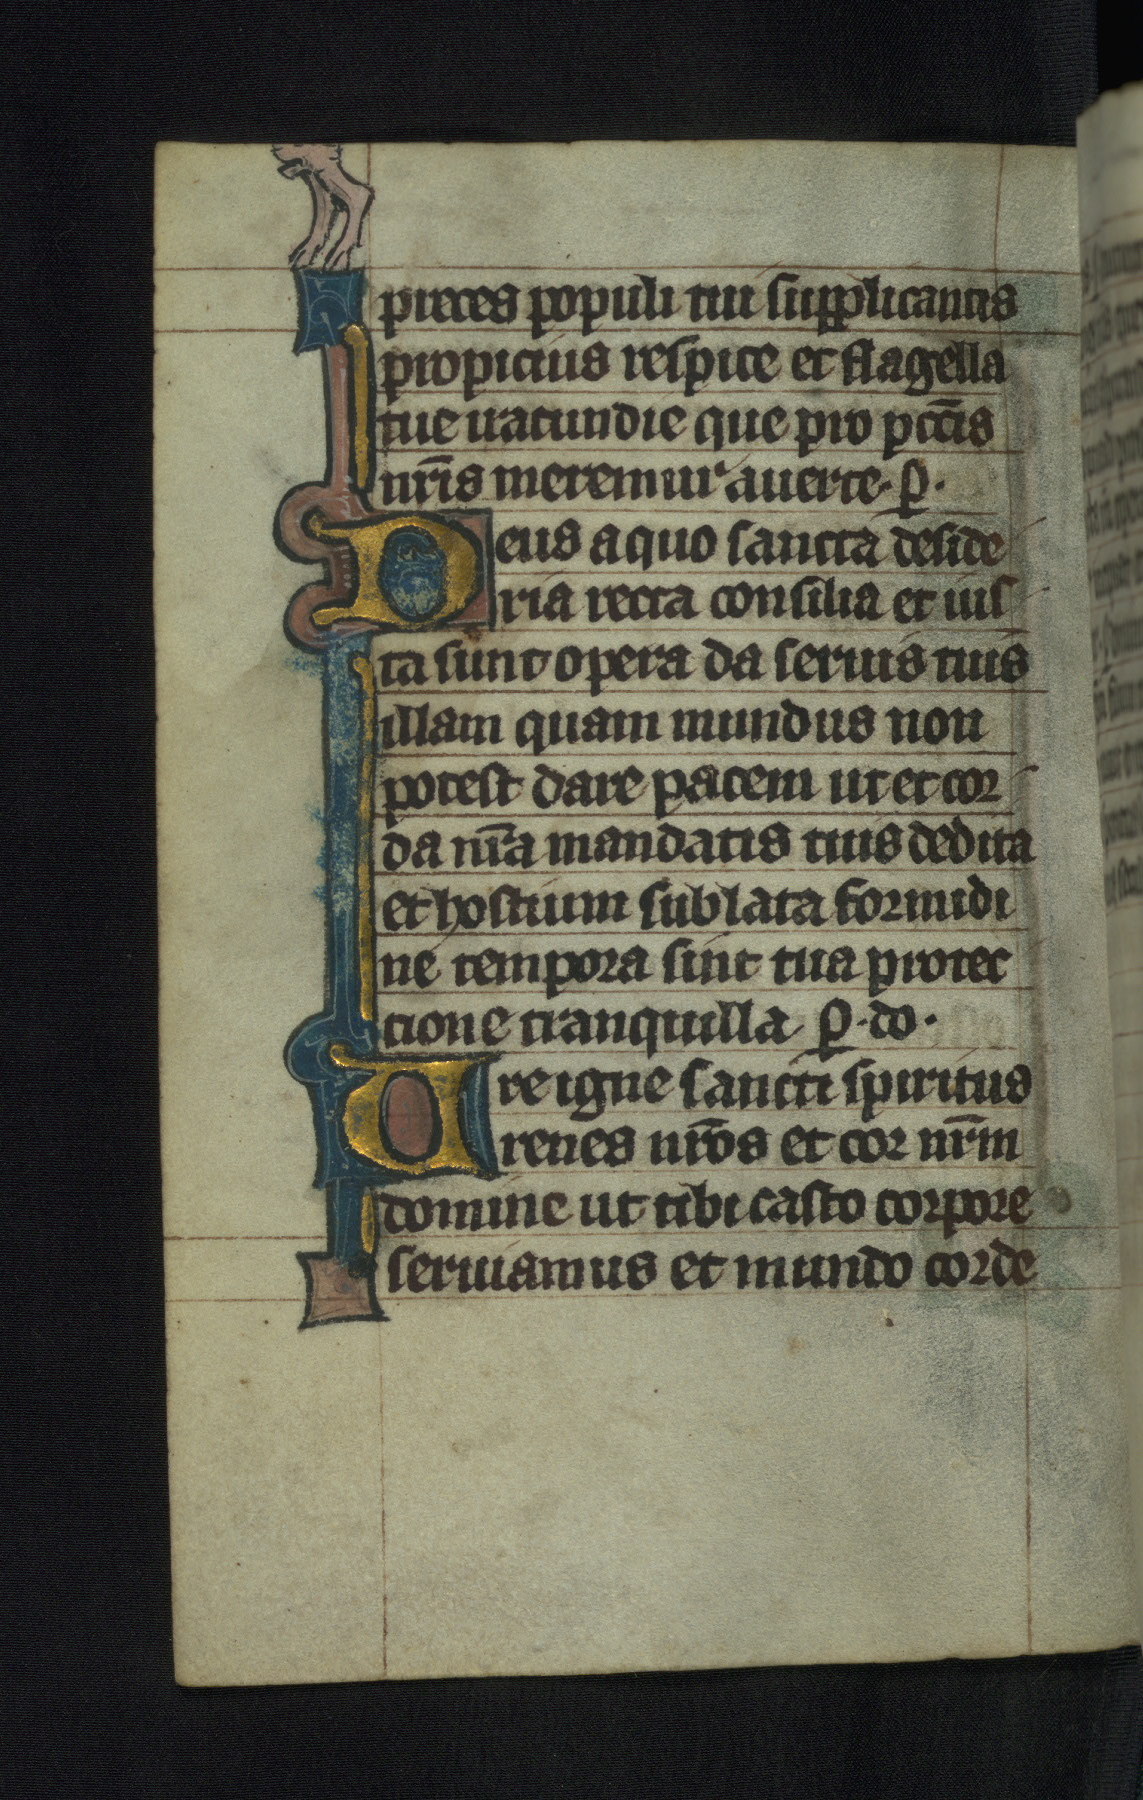 preces populi tui supplicantis
propicius respice et flagella
tue iracundie que pro pcc̄is
nr̄is meremur auerte. ꝑ.
Deus a quo sancta deside
ria recta consilia et ius
ta sunt opera da seruis tuis
illam quam mundus non
potest dare pacem ut et cor
da nr̄a mandatis tuis dedita
et hostium sublata formidi
ne tempora sint tua protec
tione tranquilla ꝑ. do.
Ure igne sancti spiritus
renes nr̄os et cor nr̄m
domine ut tibi casto corpore
seruiamus et mundo corde